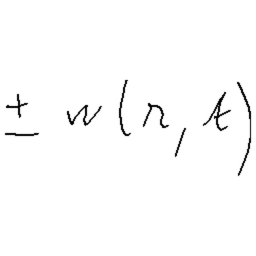 ± w(r, t)